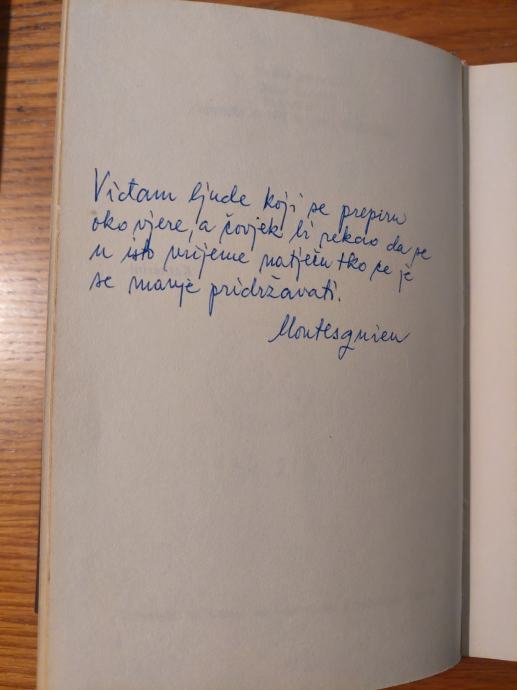 Viđam ljude koji se prepiru
oko vjere, a čovjek bi rekao da se
u isto vrijeme natječu tko će je
se manje pridržavati.
Montesquieu